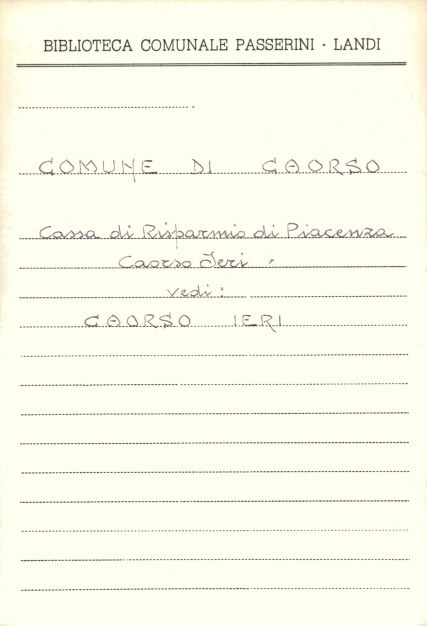 BIBLIOTECA COMUNALE PASSERINI - LANDI
COMUNE DI CAORSO
Cassa di Risparmio di Piacenza
Caorso Ieri.
vedi:
CAORSO IERI